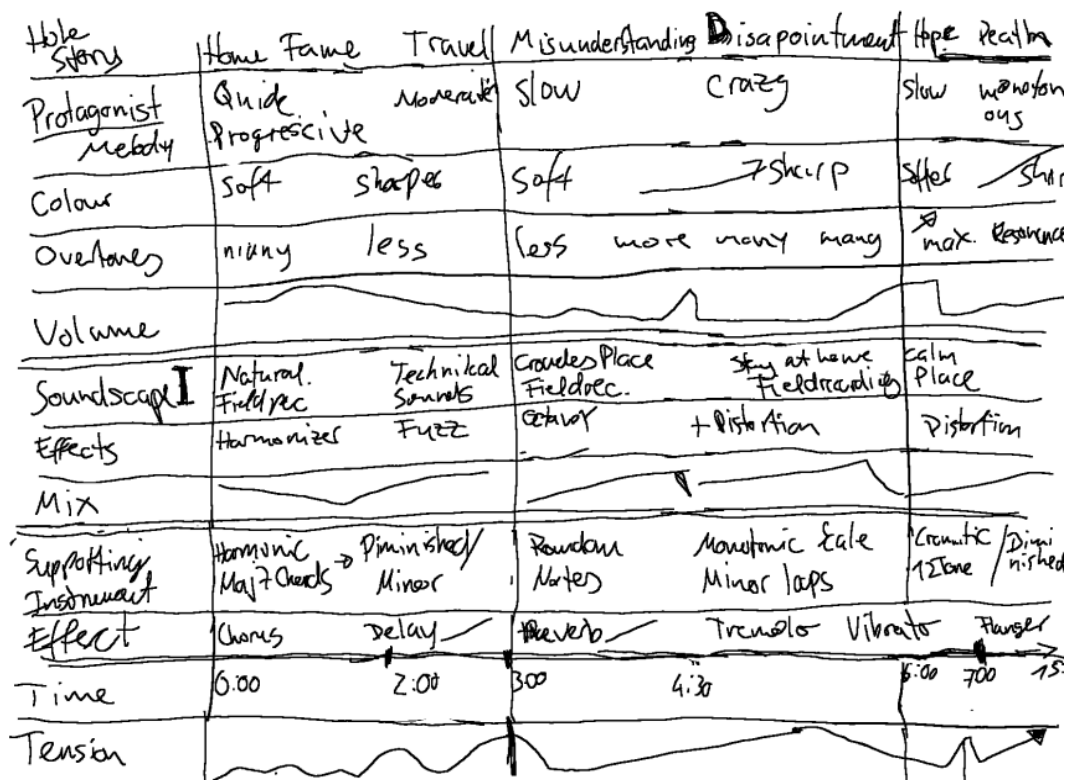 Hole Story Home Fame Travel Misunderstanding Disapointment Hope
Protagonist Melody Quide Progrescive Moderate Slow Crazy Slow monotonous
Colour Soft Sharper Soft Sharp Softer
Overtones many less less more many many max. Resonance
Volume
Soundscape I Natural. Fieldrec Technikal Sounds Croudes Place Fieldrec. Stay at home Fieldrecording Calm Place
Effects Harmonizer Fuzz Octavor + Distortion Distortion
Mix
Supporting Instrument Harmonic Maj7 Chords → Diminished/ Minor Random Nortes Monotonic Scale Minor loops Cromatic 12Tone / Diminished
Effect Chorus Delay Reverb Tremolo Vibrato Flanger
Time 0:00 2:00 300 4:30 6:00 700
Tension